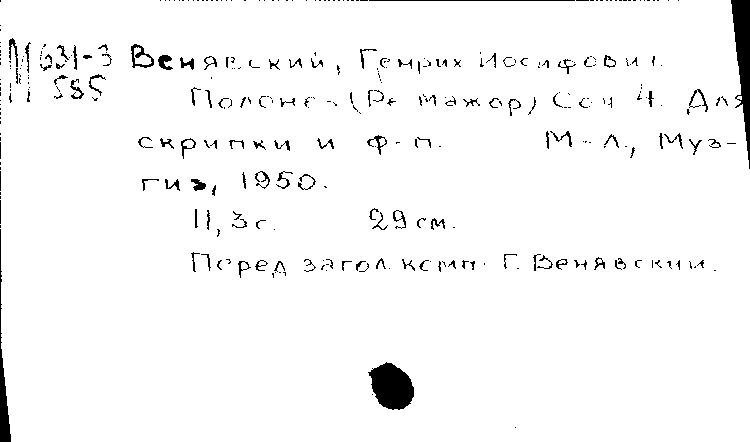 М 631-3
585
Венявский, Генрих Иосифович.
Полонез (Ре мажор) Соч 4. Для
скрипки и ф-п. М-Л., Муз-
гиз, 1950.
11, 3 с. 29 см.
Перед загол. комп. Г. Венявский.